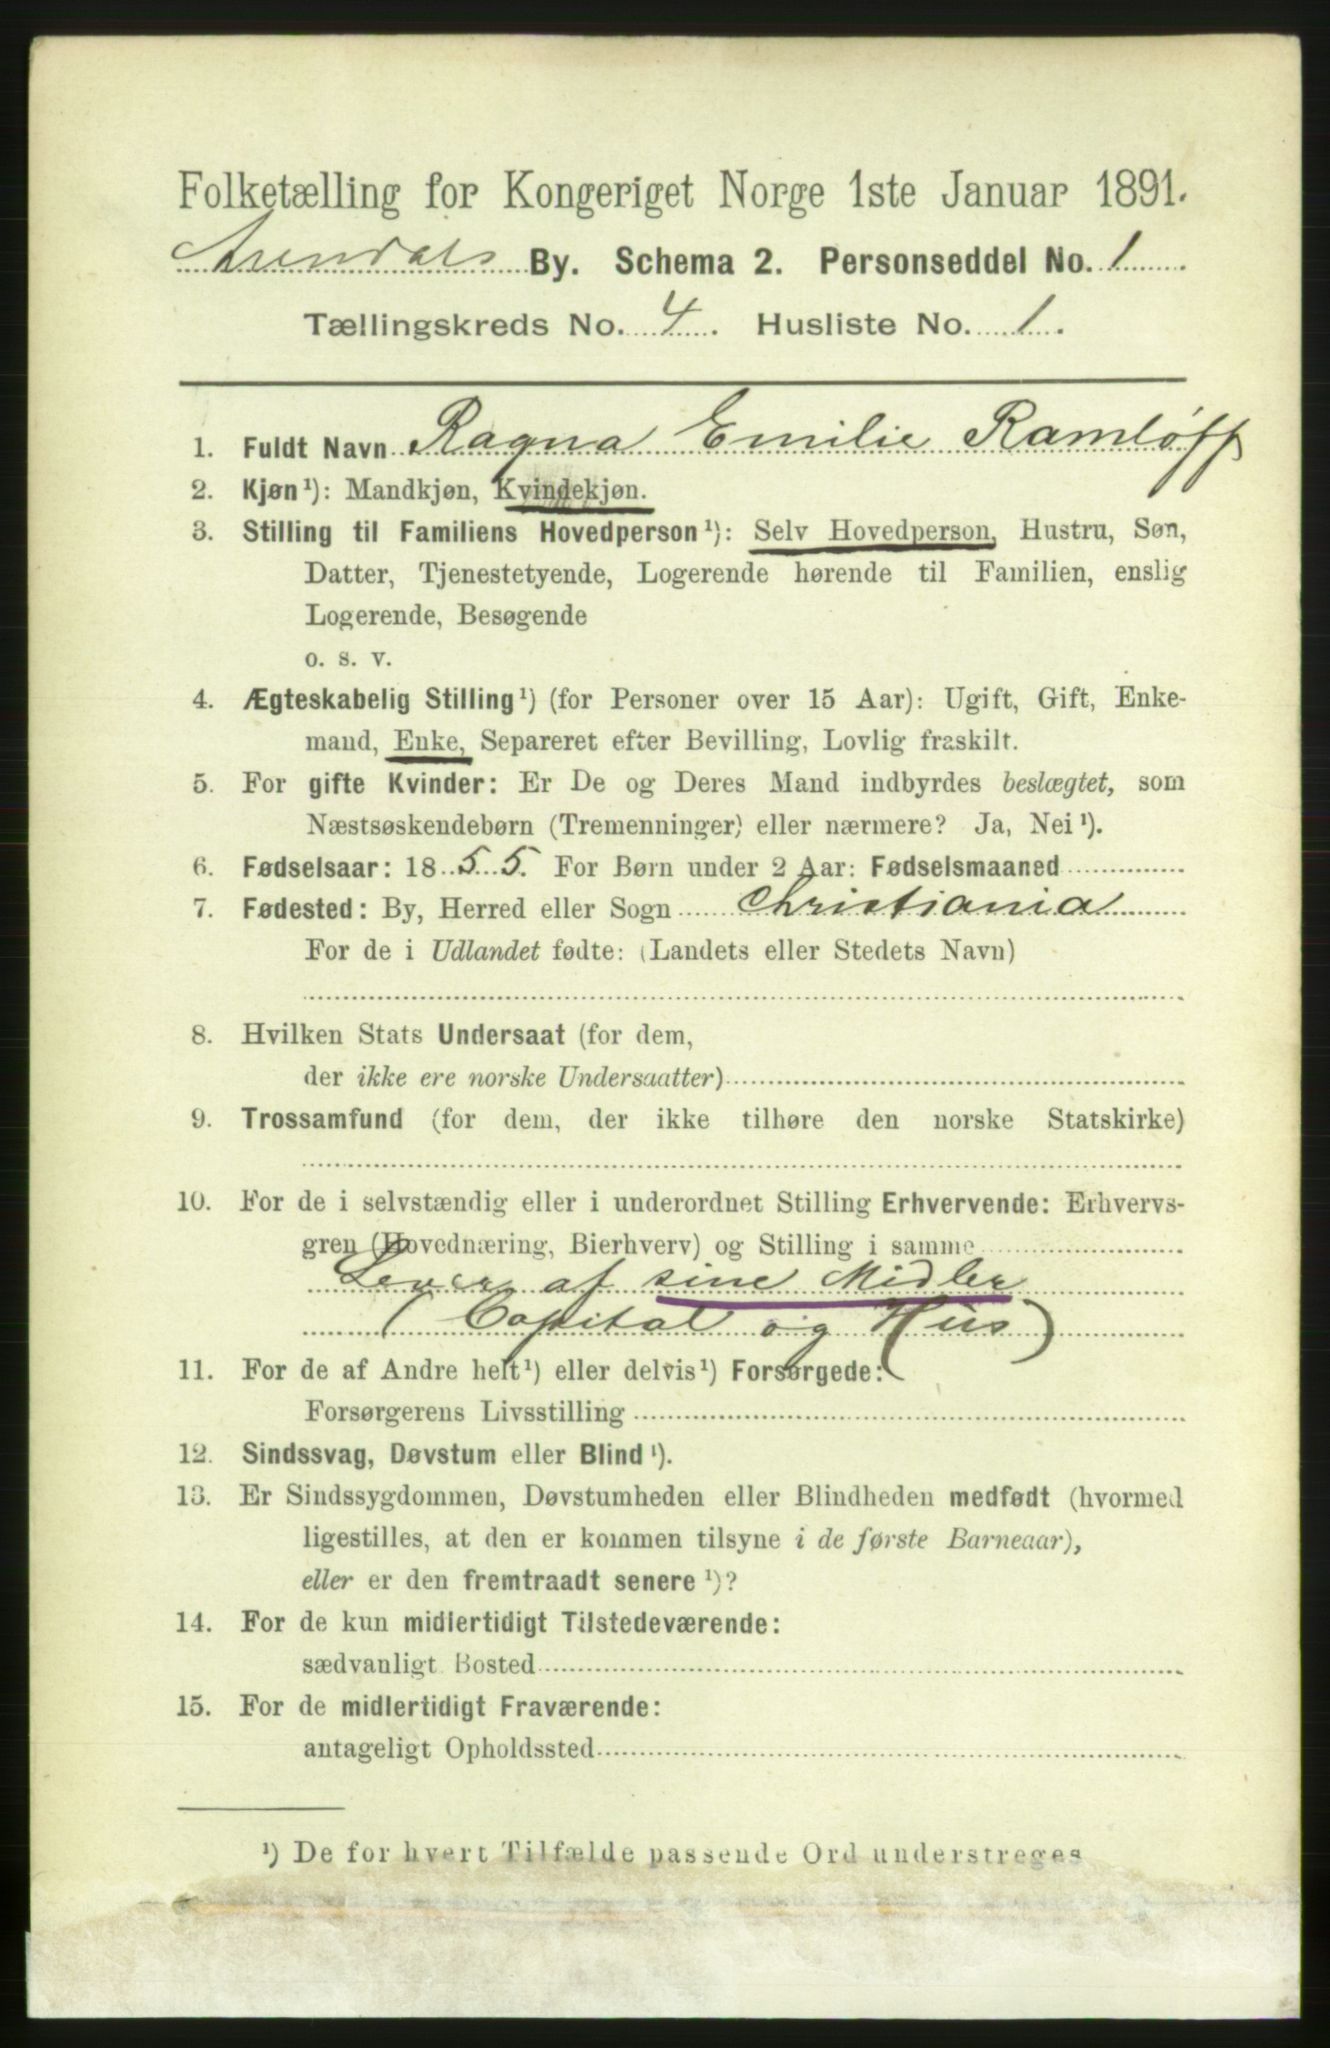 Folketælling for Kongeriget Norge 1ste Januar 1891.
Arendals By. Schema 2. Personseddel No. 1
Tællingskreds No. 4. Husliste No. 1.
1. Fuldt Navn Ragna Emilie Ramløff
2. Kjøn¹): Mandkjøn, Kvindekjøn.
3. Stilling til Familiens Hovedperson¹): Selv Hovedperson, Hustru, Søn,
Datter, Tjenestetyende, Logerende hørende til Familien, enslig
Logerende, Besøgende
o. s. v.
4. Ægteskabelig Stilling¹) (for Personer over 15 Aar): Ugift, Gift, Enke-
mand, Enke, Separeret efter Bevilling, Lovlig fraskilt.
5. For gifte Kvinder: Er De og Deres Mand indbyrdes beslægtet, som
Næstsøskendebørn (Tremenninger) eller nærmere? Ja, Nei¹).
6. Fødselsaar: 1855. For Børn under 2 Aar: Fødselsmaaned
7. Fødested: By, Herred eller Sogn Christiania
For de i Udlandet fødte: (Landets eller Stedets Navn)
8. Hvilken Stats Undersaat (for dem,
der ikke ere norske Undersaatter)
9. Trossamfund (for dem, der ikke tilhøre den norske Statskirke)
10. For de i selvstændig eller i underordnet Stilling Erhvervende: Erhvervs-
gren (Hovednæring, Bierhverv) og Stilling i samme
Lever af sine Midler
(Capital og Hus)
11. For de af Andre helt¹) eller delvis¹) Forsørgede:
Forsørgerens Livsstilling
12. Sindssvag, Døvstum eller Blind¹).
13. Er Sindssygdommen, Døvstumheden eller Blindheden medfødt (hvormed
ligestilles, at den er kommen tilsyne i de første Barneaar),
eller er den fremtraadt senere¹)?
14. For de kun midlertidigt Tilstedeværende:
sædvanligt Bosted
15. For de midlertidigt Fraværende:
antageligt Opholdssted
¹) De for hvert Tilfælde passende Ord understreges